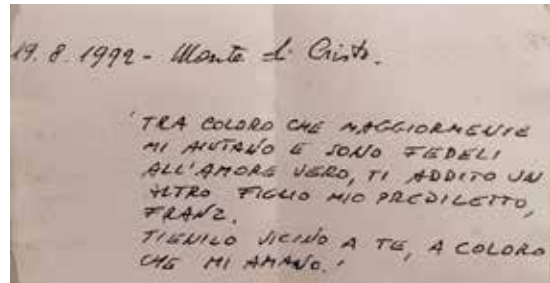 19.8.1992 - Monte di Cristo.
'TRA COLORO CHE MAGGIORMENTE
MI AIUTANO E SONO FEDELI
ALL'AMORE VERO, TI ADDITO UN
ALTRO FIGLIO MIO PREDILETTO,
FRANZ.
TIENILO VICINO A TE, A COLORO
CHE MI AMANO.'